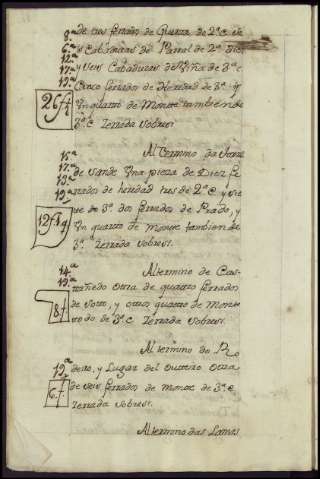 8ª de tres ferrados de Guerta de 2ª C. de
6ª y Cabaduras de Parral de 2ª Diez
12ª y seis Cabaduras de Viña de 3ª C
17ª Cinco ferrados de Heredad de 3ª y
19ª
26f4 Un quarto de Monte tambien de
3ª C Zerrada Sobresi.
15ª Al Termino da
17ª de Una pieza de Diez fe
18ª rrados de heridad tres de 2ª C y sie
19ª te de 3ª dos ferrados de Prado, y
12f1q Un quarto de monte tambien de
3ª Zerrada Sobresi.
14ª Al termino de Cas
19ª tañedo otra de quatro ferrados
8f de Soto, y otros quatro de Mon
te todo de 3ª C Zerrada Sobresi.
Al termino de
19ª y Lugar del Outeiro Otra
6f de seis ferrados de monte de 3ª C
Zerrada Sobresi.
Al termino das Lamas